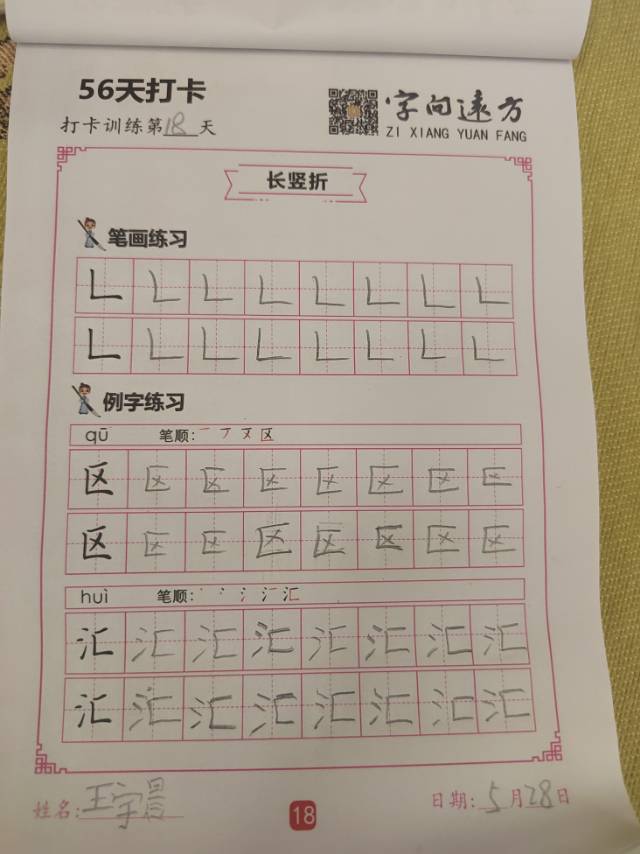 56天打卡
字向遠方
打卡训练第18天
ZI XIANG YUAN FANG
长竖折
笔画练习
𠃊 𠃊 𠃊 𠃊 𠃊 𠃊 𠃊 𠃊
𠃊 𠃊 𠃊 𠃊 𠃊 𠃊 𠃊 𠃊
例字练习
qū 笔顺: 一 丆 又 区
区 区 区 区 区 区 区 区
区 区 区 区 区 区 区 区
huì 笔顺: 丶 冫 氵 汇
汇 汇 汇 汇 汇 汇 汇 汇
汇 汇 汇 汇 汇 汇 汇 汇
姓名: 王宇晨 18 日期: 5月28日